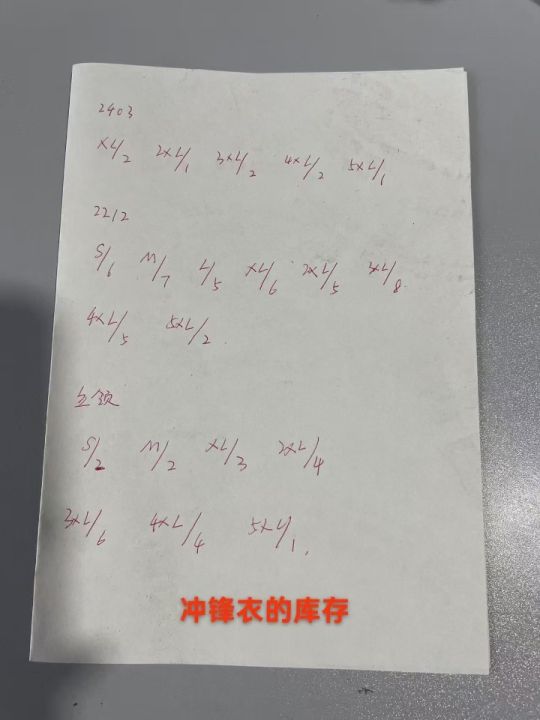 2403
XL/2 2XL/1 3XL/2 4XL/2 5XL/1
2212
S/6 M/7 L/5 XL/6 2XL/5 3XL/8
4XL/5 5XL/2
立领
S/2 M/2 XL/3 2XL/4
3XL/6 4XL/4 5XL/1
冲锋衣的库存